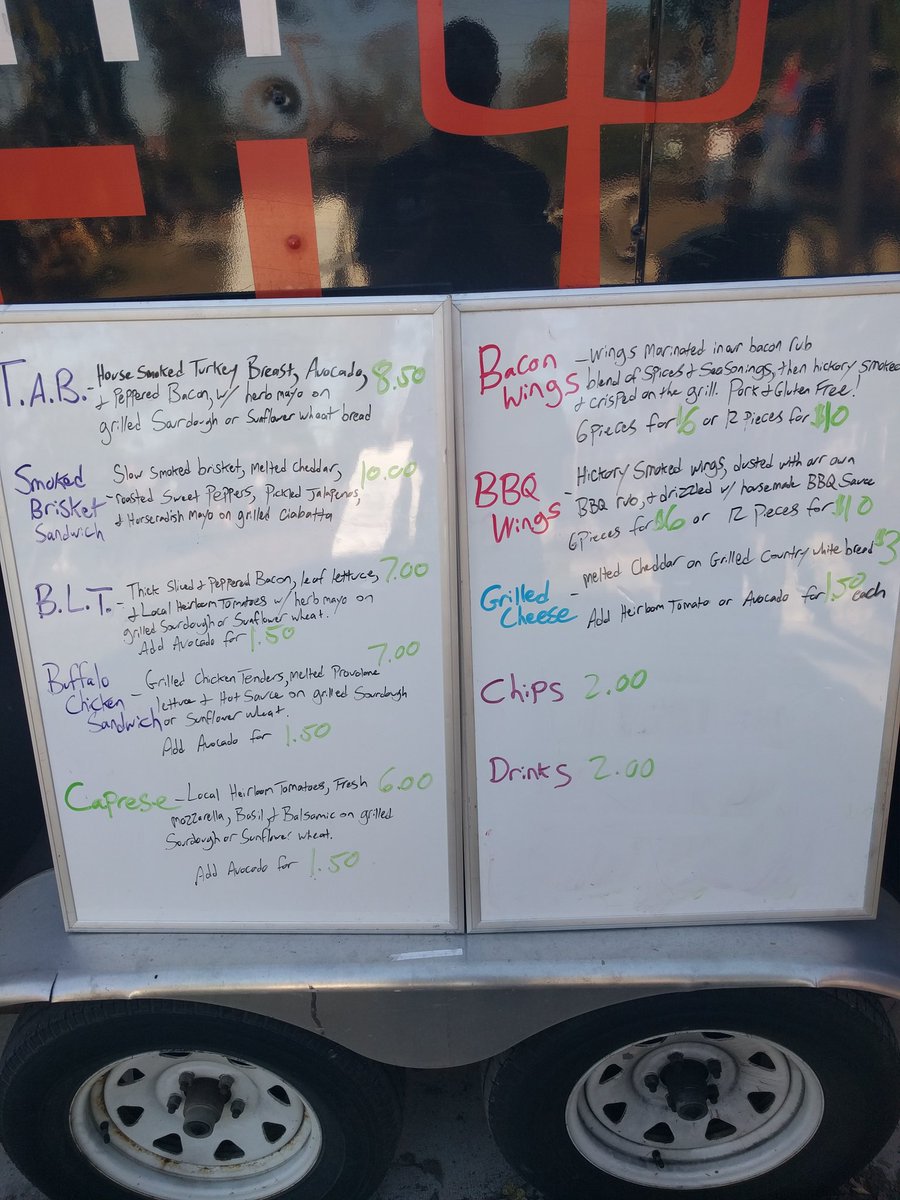 T.A.B. - House Smoked Turkey Breast, Avocado, 8.50
& Peppered Bacon, w/ herb mayo on
grilled Sourdough or Sunflower wheat bread
Smoked Brisket Sandwich - Slow smoked brisket, melted cheddar, 10.00
roasted Sweet Peppers, Pickled Jalapenos,
& Horseradish Mayo on grilled Ciabatta
B.L.T. - Thick Sliced & Peppered Bacon, leaf lettuce, 7.00
& Local Heirloom Tomatoes w/ herb mayo on
grilled Sourdough or Sunflower wheat.
Add Avocado for 1.50
Buffalo Chicken Sandwich - Grilled Chicken Tenders, Melted Provolone 7.00
lettuce & Hot Sauce on grilled Sourdough
or Sunflower wheat.
Add Avocado for 1.50
Caprese - Local Heirloom Tomatoes, Fresh 6.00
mozzarella, Basil & Balsamic on grilled
Sourdough or Sunflower wheat.
Add Avocado for 1.50
Bacon Wings - Wings Marinated in our bacon rub
blend of Spices & Seasonings, then hickory smoked
& crisped on the grill. Pork & Gluten Free!
6 Pieces for $6 or 12 Pieces for $10
BBQ Wings - Hickory Smoked wings, dusted with our own
BBQ rub, & drizzled w/ housemade BBQ Sauce
6 Pieces for $6 or 12 Pieces for $10
Grilled Cheese - melted Cheddar on Grilled Country white bread $3
Add Heirloom Tomato or Avocado for 1.50 each
Chips 2.00
Drinks 2.00